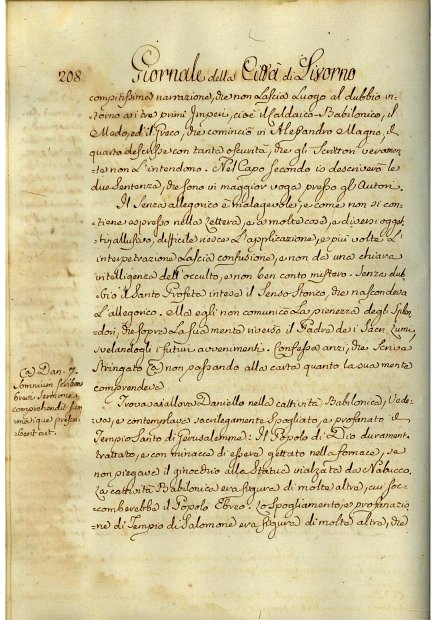 208
Giornale della Città di Livorno
compitissima narrazione, che non lascia luogo al dubbio in-
torno a i tre primi Imperi, cioè il Caldaico-Babilonico, il
Medo, ed il Greco, che cominciò in Alessandro Magno, il
quarto descrisse con tanta oscurità, che gli Scrittori veramen-
te non l'intendono. Nel Capo secondo io descriverò le
due Sentenze, che sono in maggior voga presso gli Autori.
Il Senso allegorico è malagevole, e come non si con-
tiene espresso nella lettera, e a molte cose, e diversi ogget-
ti allusivo, difficile riesce l'applicazione, e più volte l'
interpetrazione lascia confusione, e non dà una chiara
intelligenza dell'occulto, e non ben conto mistero. Senza dub-
bio il Santo Profeta intese il Senso Storico, che nascondeva
l'allegorico. Ma egli non comunicò la pienezza degli Splen-
dori, che sopra la sua mente riversò il Padre de i Sacri Lumi,
svelandogli i futuri avvenimenti. Confessa anzi, che scrisse
Stringato (a) non passando alla carta quanto la sua mente
comprendeva
(a) Dan. 7.
Somnium scribens
brevi Sermone
comprehendit sum
matique perstrin
xit ait.
Trovavasi allora Daniello nella cattività Babilonica, Vede-
va, e contemplava sacrilegamente Spogliato, e profanato il
Tempio Santo di Gerusalemme: Il Popolo di Dio durament.
trattato, e con minacce di essere gettato nella fornace, se
non piegava il ginocchio alla Statua inalzata da Nabucco.
La cattività Babilonica era figura di molte altre, cui soc-
comberebbe il Popolo Ebreo. Lo Spogliamento, e profanazio-
ne di Tempio di Salomone era figura di molte altre, che